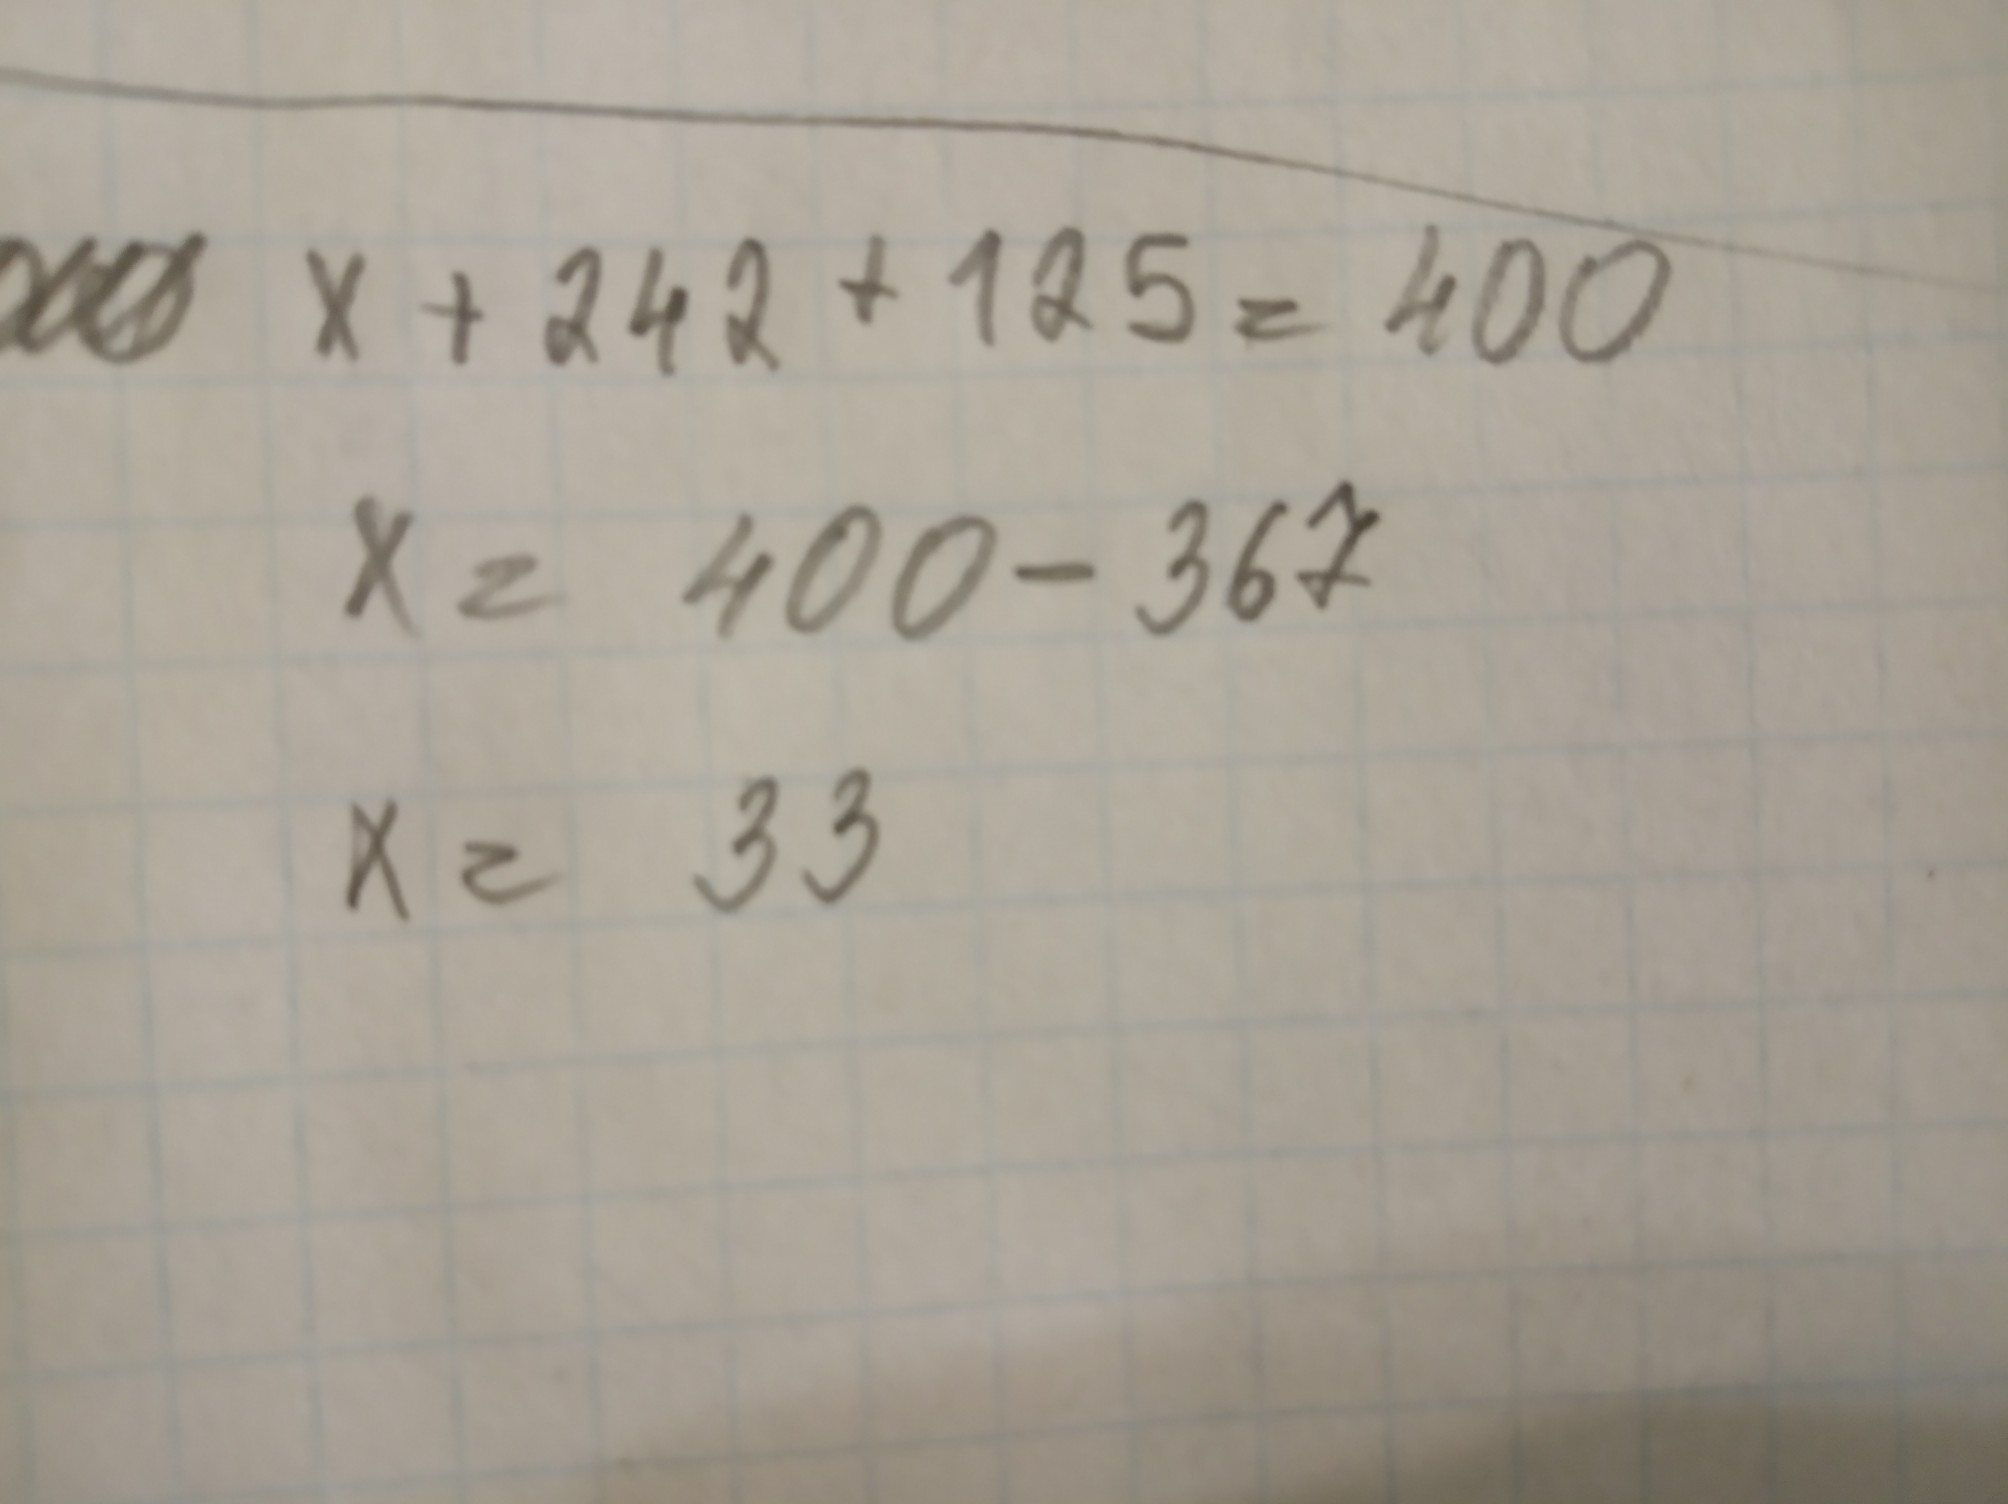 x + 242 + 125 = 400
x = 400 - 367
x = 33